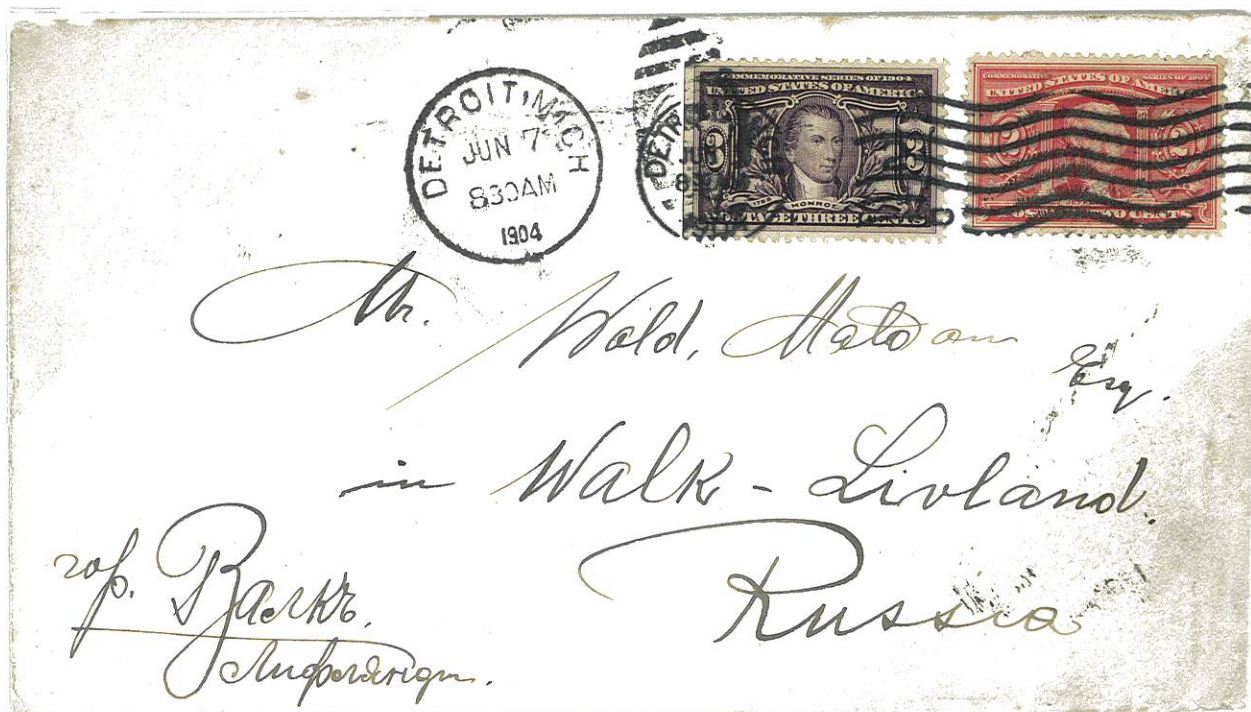 DETROIT, MICH
JUN 7
830AM
1904
COMMEMORATIVE SERIES OF 1904
UNITED STATES OF AMERICA
3 3
MONROE
POSTAGE THREE CENTS
COMMEMORATIVE SERIES OF 1904
UNITED STATES OF AMERICA
2 2
TWO CENTS
Mr. Wold,
Esq.
in Walk - Livland.
Russia
гор. Валкъ.